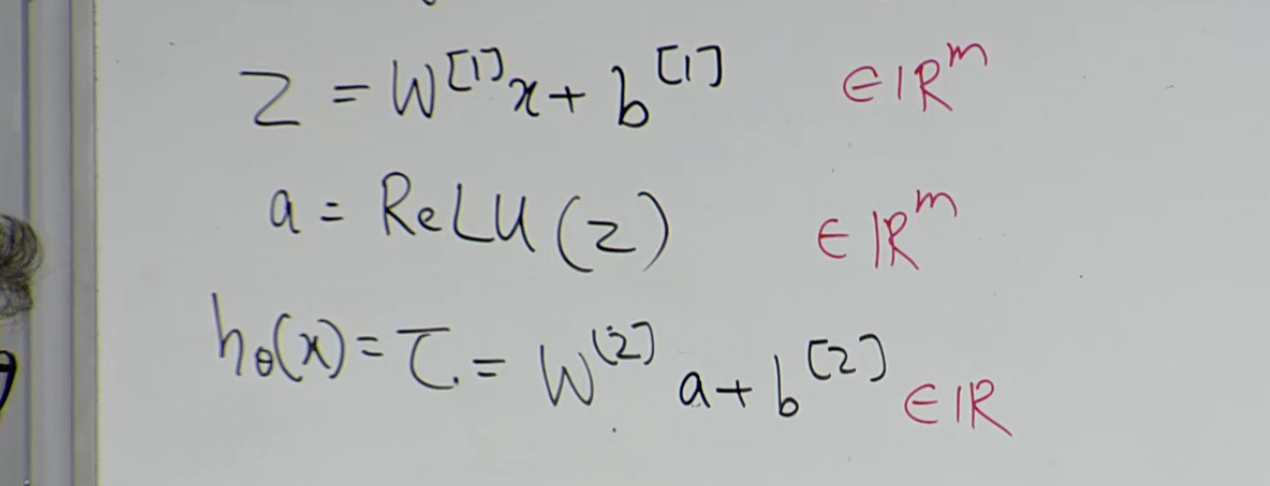 z = W^[1] x + b^[1] ∈ ℝ^m
a = ReLU(z) ∈ ℝ^m
h_θ(x) = τ = W^[2] a + b^[2] ∈ ℝ